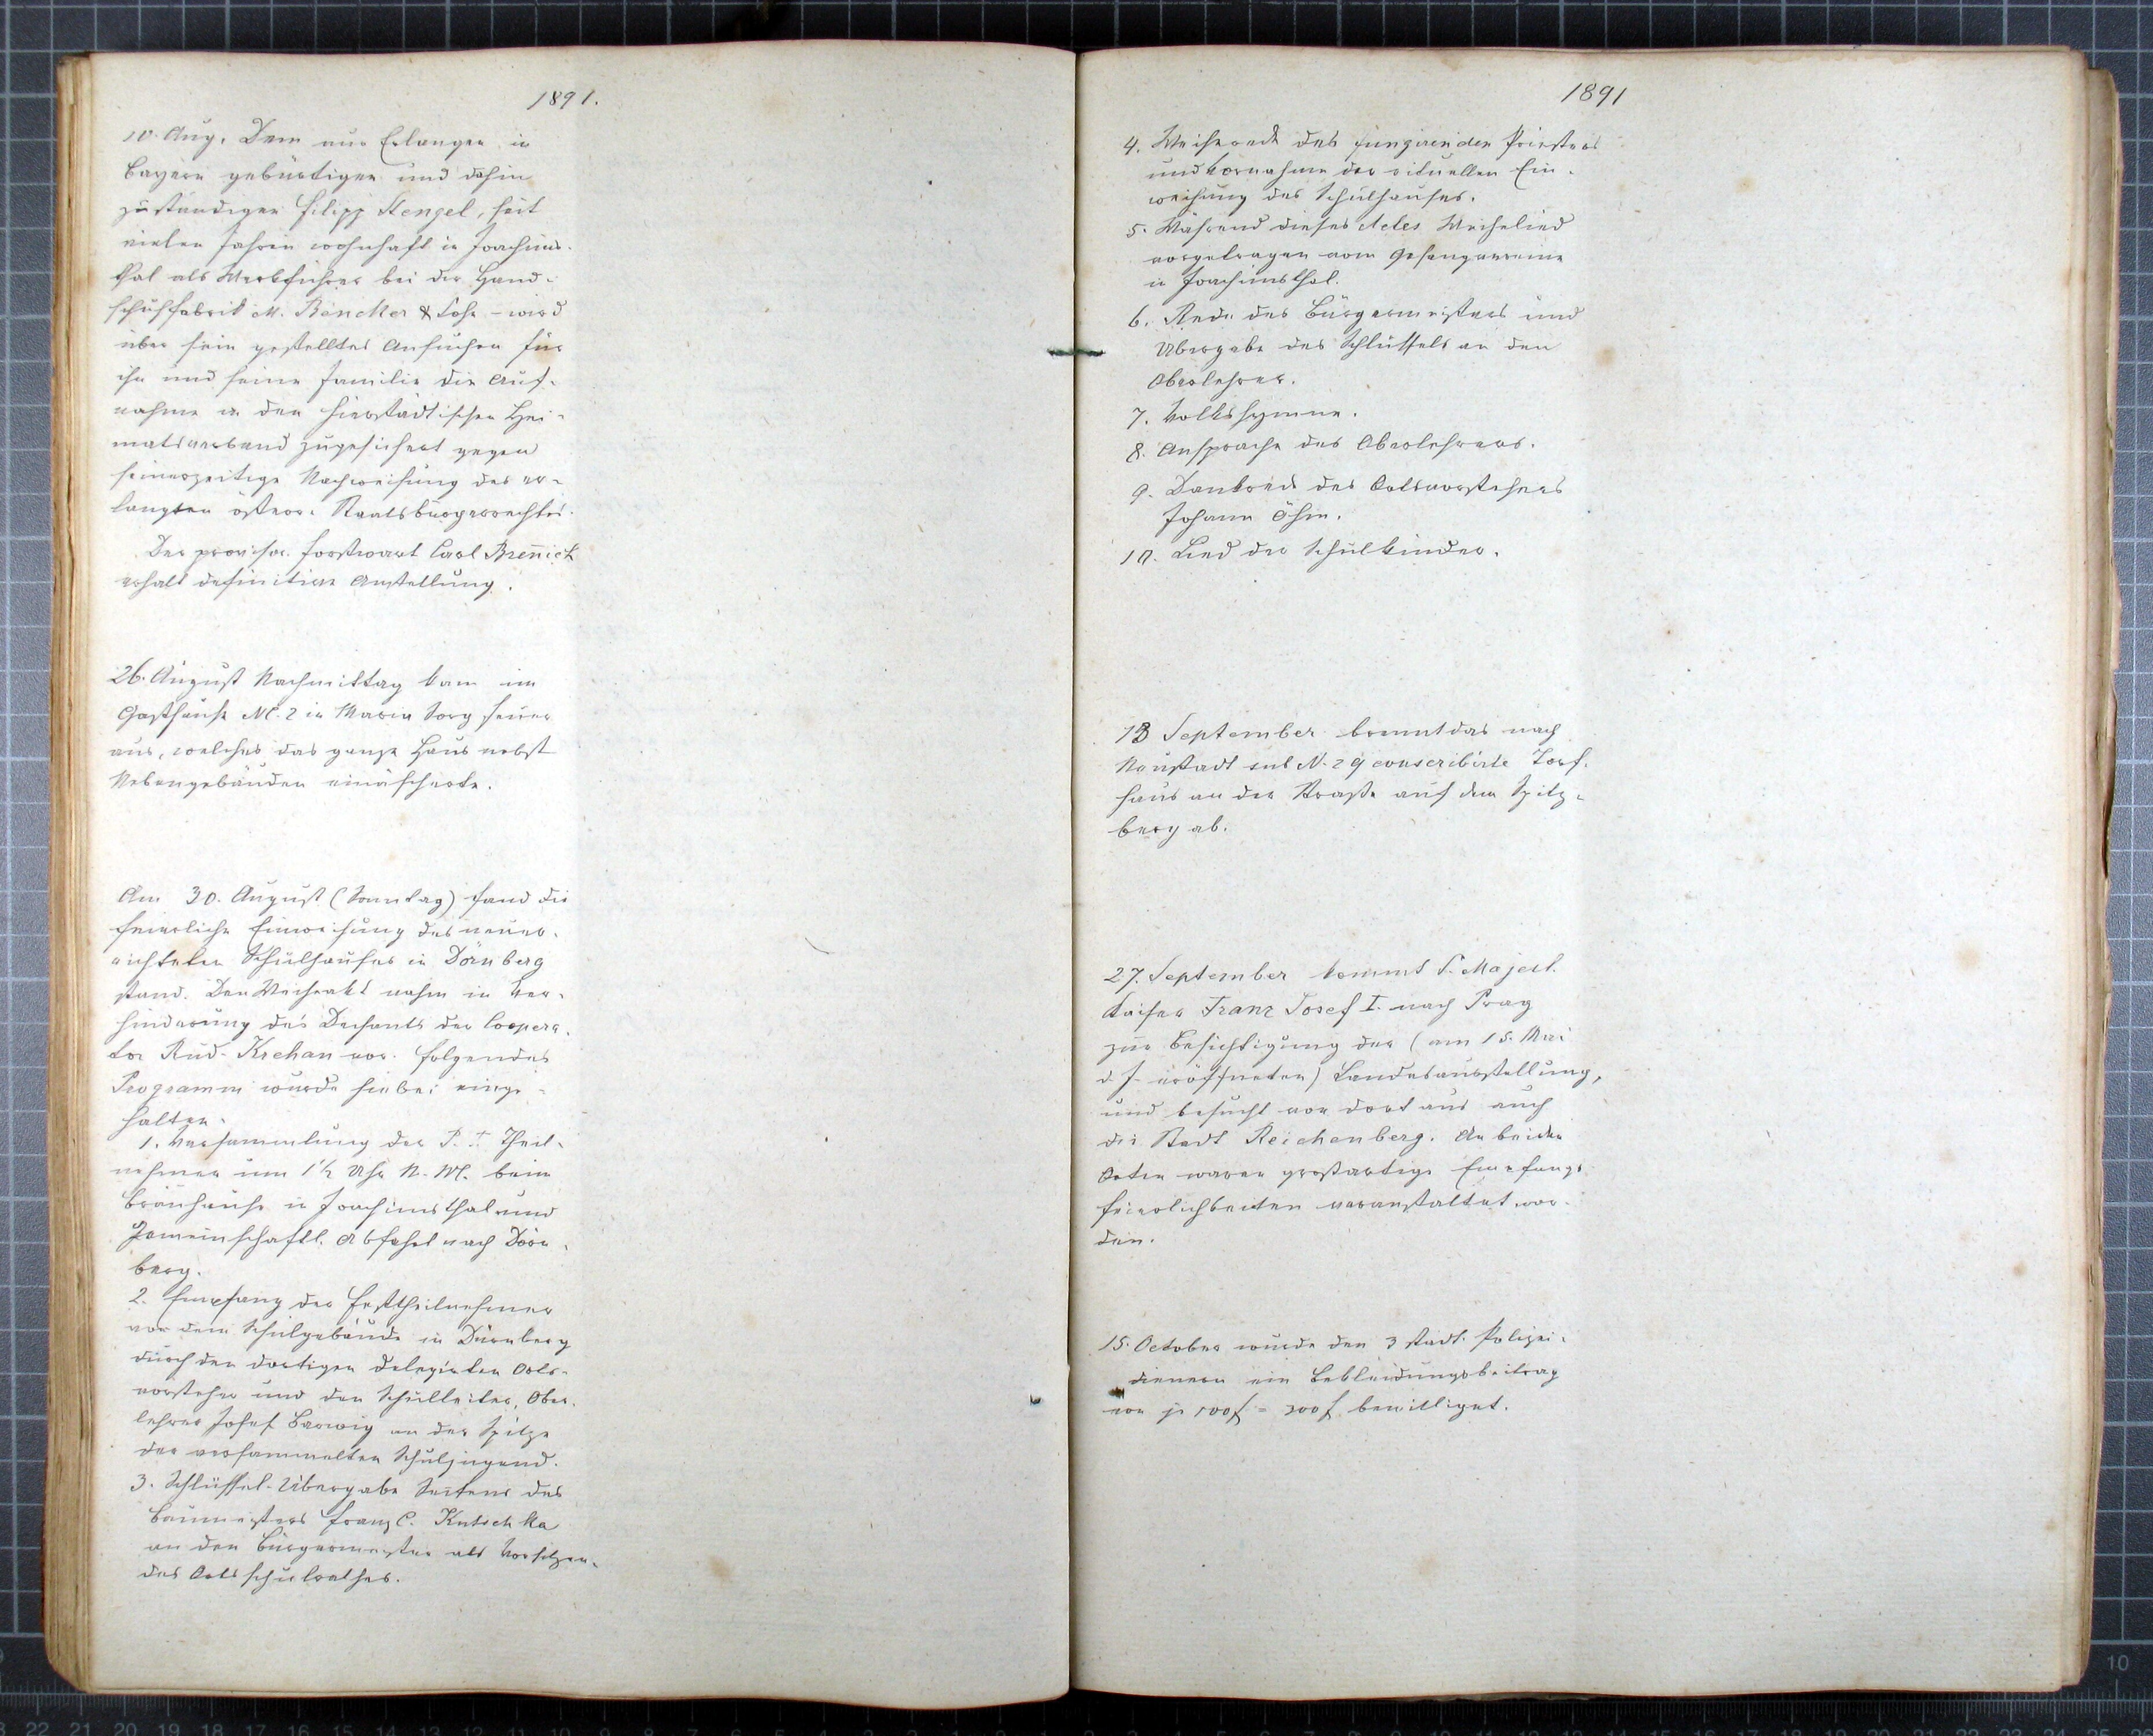 1891.
10. Aug. Dem aus Erlangen in
Bayern gebürtigen und dahin
zuständigen Filipp Stengel, seit
vielen Jahren wohnhaft in Joachims-
thal als Werkführer bei der Hand-
schuhfabrik M. Böncker & Sohn - wird
über sein gestelltes Ansuchen für
ihn und seine Familie die Auf-
nahme in den hierstädtischen Hei-
matsverband zugesichert gegen
seinerzeitige Nachweisung des er-
langten österr. Staatsbürgerrechtes.
Der provisor. Forstwart Carl Brenick
erhält definitive Anstellung.
26. August Nachmittag kam im
Gasthause N.C. 2 in Maria Sorg Feuer
aus, welches das ganze Haus nebst
Nebengebäuden einäscherte.
Am 30. August (Sonntag) fand die
feierliche Einweihung des neuer-
richteten Schulhauses in Dörnberg
stand. Den Weiheakt nahm in Ver-
hinderung des Dechants der Coopera-
tor Rud. Krehan vor. Folgendes
Programm wurde hiebei einge-
halten.
1. Versammlung der P. T. Theil-
nehmer um 1½ Uhr N. M. beim
Bräuhause in Joachimsthal und
Gemeinschaftl. Abfahrt nach Dörn-
berg.
2. Empfang der Festtheilnehmer
vor dem Schulgebäude in Dürnberg
durch den dortigen delegirten Orts-
vorsteher und den Schulleiter, Ober-
lehrer Josef Barwig an der Spitze
der versammelten Schuljugend.
3. Schlüssel-Übergabe Seitens des
Baumeisters Franz C. Kutschka
an den Bürgermeister als Vorsitzen-
des Ortsschulrathes.
1891
4. Weiherede des fungirenden Priesters
und Vornahme der rituellen Ein-
weihung des Schulhauses.
5. Während dieses Actes Weihelied
vorgetragen vom Gesangvereine
in Joachimsthal.
6. Rede des Bürgermeisters und
Übergabe des Schlüssels an den
Oberlehrer.
7. Volkshymne.
8. Ansprache des Oberlehrers.
9. Dankrede des Ortsvorstehers
Johann Öhm.
10. Lied der Schulkinder.
13 September brennt das nach
Neustadt sub N. 29 conscribirte Torf-
haus an der Straße auf dem Spitz-
berg ab.
27. September kommt S. Majest.
Kaiser Franz Josef I. nach Prag
zur Besichtigung der (am 15. Mai
d. J. eröffneten) Landesausstellung,
und besucht von dort aus auch
die Stadt Reichenberg. An beiden
Orten waren großartige Empfangs-
feierlichkeiten veranstaltet wor-
den.
15. October wurde den 3 städt. Polizei-
dienern ein Bekleidungsbeitrag
von je 100 f = 300 f bewilliget.